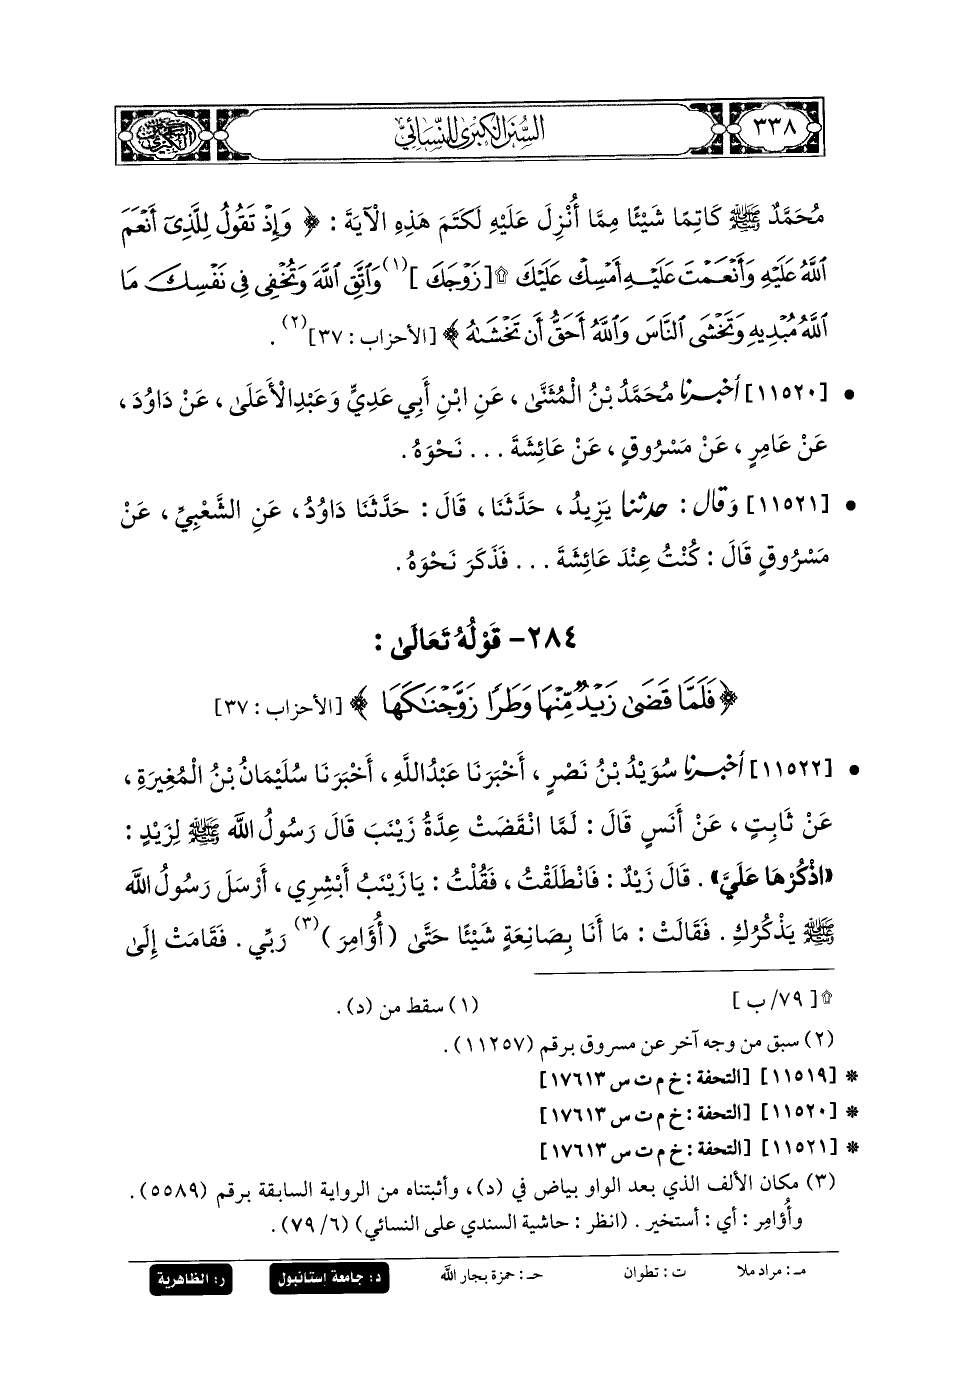 ٣٣٨
السنن الكبرى للنسائي
مُحَمَّدٌ ﷺ كَاتِمًا شَيْئًا مِمَّا أُنْزِلَ عَلَيْهِ لَكَتَمَ هَذِهِ الْآيَةَ : ﴿ وَإِذْ تَقُولُ لِلَّذِيٓ أَنْعَمَ
ٱللَّهُ عَلَيْهِ وَأَنْعَمْتَ عَلَيْهِ أَمْسِكْ عَلَيْكَ ۩ [زَوْجَكَ](١) وَٱتَّقِ ٱللَّهَ وَتُخْفِى فِى نَفْسِكَ مَا
ٱللَّهُ مُبْدِيهِ وَتَخْشَى ٱلنَّاسَ وَٱللَّهُ أَحَقُّ أَن تَخْشَىٰهُ ﴾ [الأحزاب : ٣٧](٢) .
• [١١٥٢٠] أخبرنا مُحَمَّدُ بْنُ الْمُثَنَّىٰ ، عَنِ ابْنِ أَبِي عَدِيٍّ وَعَبْدِالْأَعْلَىٰ ، عَنْ دَاوُدَ ،
عَنْ عَامِرٍ ، عَنْ مَسْرُوقٍ ، عَنْ عَائِشَةَ . . . نَحْوَهُ .
• [١١٥٢١] وَقال : حدثنا يَزِيدُ ، حَدَّثَنَا ، قَالَ : حَدَّثَنَا دَاوُدُ ، عَنِ الشَّعْبِيِّ ، عَنْ
مَسْرُوقٍ قَالَ : كُنْتُ عِنْدَ عَائِشَةَ . . . فَذَكَرَ نَحْوَهُ .
٢٨٤- قَوْلُهُ تَعَالَىٰ :
﴿ فَلَمَّا قَضَىٰ زَيْدٌ مِّنْهَا وَطَرًا زَوَّجْنَٰكَهَا ﴾ [الأحزاب : ٣٧]
• [١١٥٢٢] أخبرنا سُوَيْدُ بْنُ نَصْرٍ ، أَخْبَرَنَا عَبْدُاللَّهِ ، أَخْبَرَنَا سُلَيْمَانُ بْنُ الْمُغِيرَةِ ،
عَنْ ثَابِتٍ ، عَنْ أَنَسٍ قَالَ : لَمَّا انْقَضَتْ عِدَّةُ زَيْنَبَ قَالَ رَسُولُ اللَّه ﷺ لِزَيْدٍ :
«اذْكُرْهَا عَلَيَّ» . قَالَ زَيْدٌ : فَانْطَلَقْتُ ، فَقُلْتُ : يَا زَيْنَبُ أَبْشِرِي ، أَرْسَلَ رَسُولُ اللَّه
ﷺ يَذْكُرُكِ . فَقَالَتْ : مَا أَنَا بِصَانِعَةٍ شَيْئًا حَتَّىٰ (أُؤَامِرَ)(٣) رَبِّي . فَقَامَتْ إِلَىٰ
۩ [٧٩/ ب]
(١) سقط من (د) .
(٢) سبق من وجه آخر عن مسروق برقم (١١٢٥٧) .
* [١١٥١٩] [التحفة : خ م ت س ١٧٦١٣]
* [١١٥٢٠] [التحفة : خ م ت س ١٧٦١٣]
* [١١٥٢١] [التحفة : خ م ت س ١٧٦١٣]
(٣) مكان الألف الذي بعد الواو بياض في (د) ، وأثبتناه من الرواية السابقة برقم (٥٥٨٩) .
وأُؤامِر : أي : أستخير . (انظر : حاشية السندي على النسائي) (٦/ ٧٩) .
مـ : مراد ملا
ت : تطوان
حـ : حمزة بجار اللَّه
د : جامعة إستانبول
ر : الظاهرية